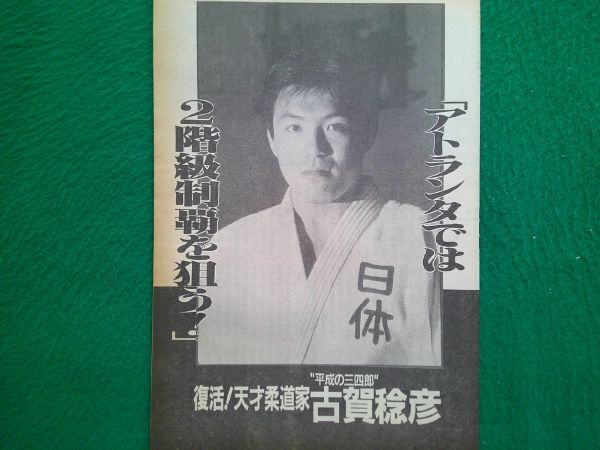 「アトランタでは
2階級制覇を狙う!」
日体
"平成の三四郎"
復活!天才柔道家古賀稔彦